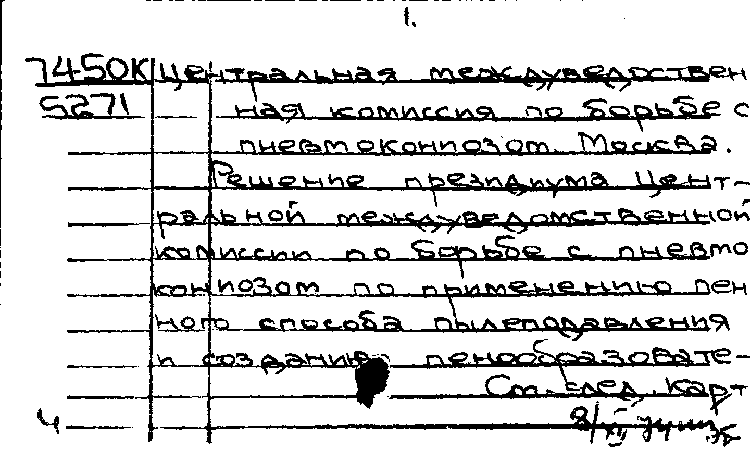 1.
7450К Центральная междуведствен
5271 ная комиссия по борьбе с
пневмокониозом. Москва.
Решение президиума Цент-
ральной междуведомственной
комиссии по борьбе с пневмо
кониозом по применению пен
ного способа пылеподавления
и созданию пенообразовате-
См. след. карт
4 8/XII